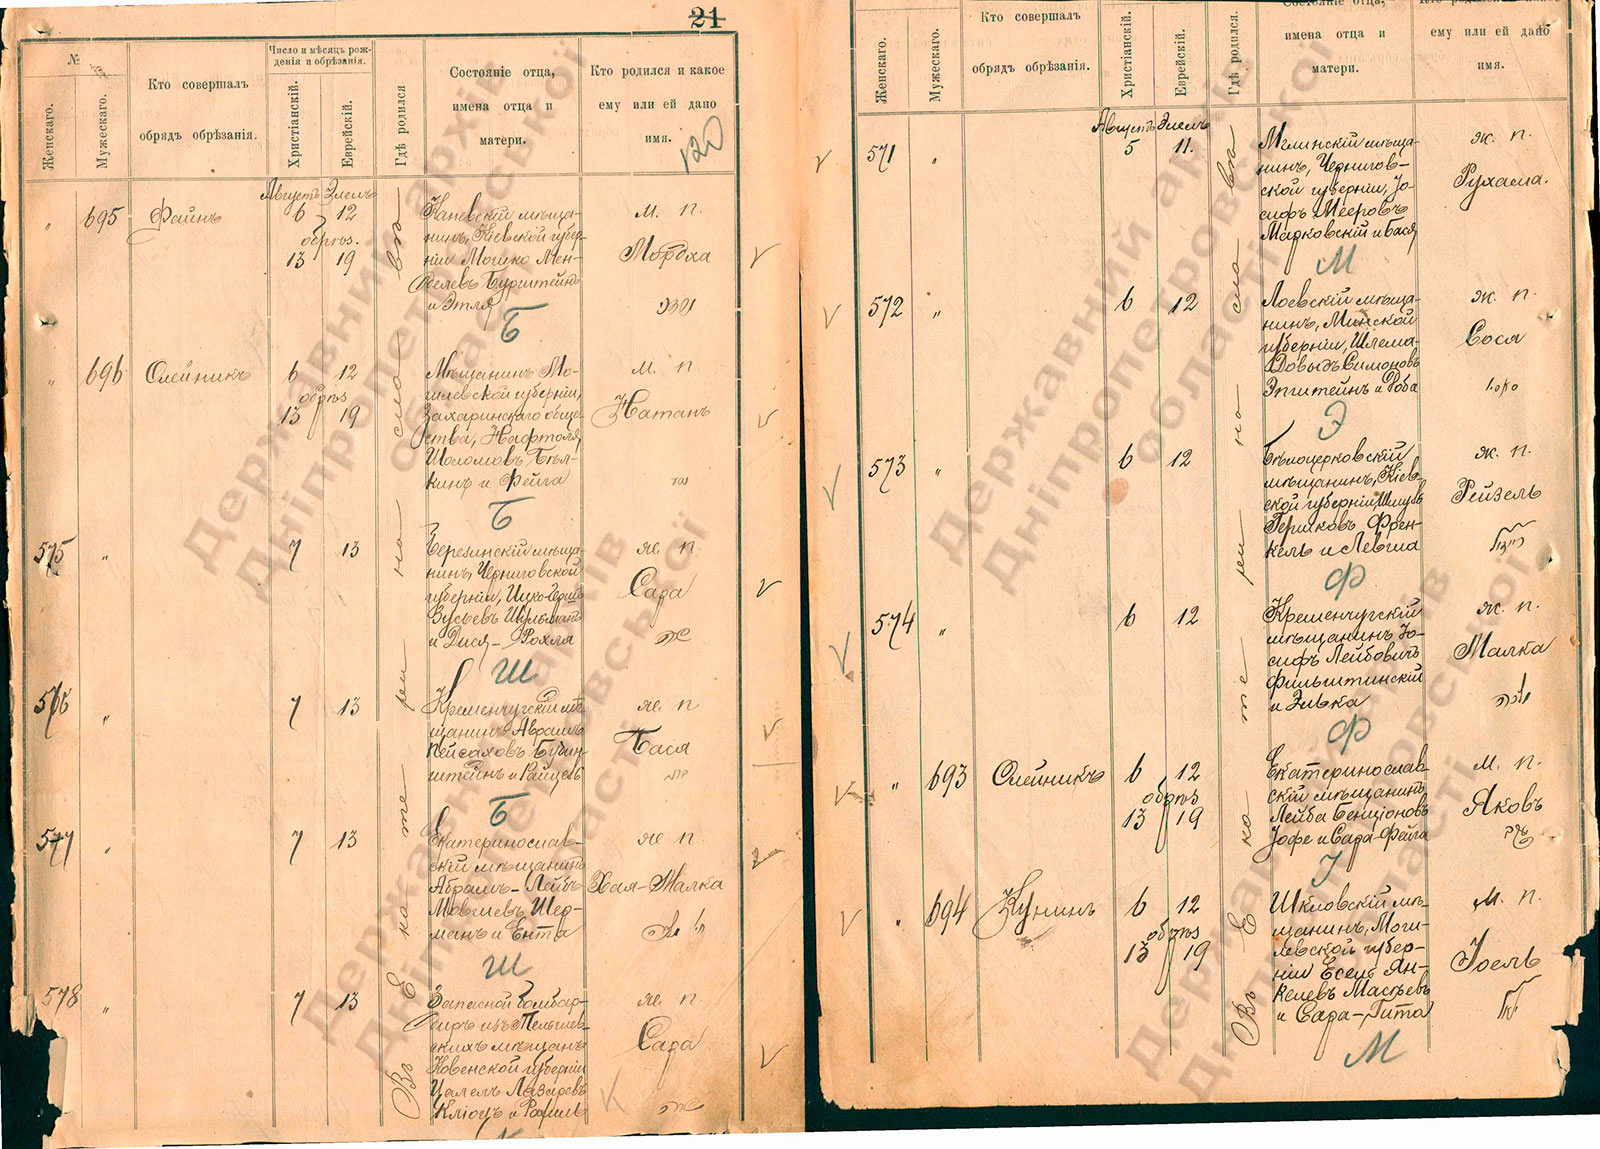 21
№
Женскаго.
Мужескаго.
Кто совершалъ
обрядъ обрѣзанія.
Число и мѣсяцъ рож-
денія и обрѣзанія.
Христіанскій.
Еврейскій.
Гдѣ родился
Состояніе отца,
имена отца и
матери.
Кто родился и какое
ему или ей дано
имя.
120
Въ Екатеринославѣ
Августъ Элелъ
" 695 Файнъ 6 12
обрѣз.
13 19
Каневскій мѣща-
нинъ, Кіевской губер-
ніи Мошко Мен-
делевъ Бурштейнъ
и Этля
Б
М. п.
Мордха
" 696 Олейникъ 6 12
обрѣз
13 19
Мѣщанинъ Мо-
гилевской губерніи,
Захаринскаго обще-
ства, Нафтоля
Шоломовъ Бѣл-
кинъ и Фейга
Б
М. п
Натанъ
575 " 7 13
Березинскій мѣща-
нинъ, Черниговской
губерніи,
Зусьевъ Шульманъ
и Дися-Рохля
Ш
Ж. п.
Сара
576 " 7 13
Кременчугскій мѣ-
щанинъ Авраамъ
Пейсаховъ
штейнъ и
Б
Ж. п
Бася
577 " 7 13
Екатеринослав-
скій мѣщанинъ
Абрамъ-Лейбъ
Мовшевъ Шер-
манъ и Ента
Ш
Ж п
Хая-Малка
578 " 7 13
Запасной бомбар-
диръ изъ
скихъ мѣщанъ
Ковенской губерніи
Цалелъ Лазаревъ
Клоцъ и
Ж. п
Сара
Женскаго.
Мужескаго.
Кто совершалъ
обрядъ обрѣзанія.
Христіанскій.
Еврейскій.
Гдѣ родился.
Состояніе отца,
имена отца и
матери.
ему или ей дано
имя.
Въ Екатеринославѣ
Августъ Элелъ
571 " 5 11.
Мглинскій мѣща-
нинъ, Чернигов-
ской губерніи, Іо-
сифъ Мееровъ
Марковскій и Бася
М
Ж. п.
Рухама.
572 " 6 12
Лоевскій мѣща-
нинъ, Минской
губерніи, Шлема-
Довыдъ Симоновъ
Эпштейнъ и Роба
Э
Ж. п.
Сося
573 " 6 12
Бѣлоцерковскій
мѣщанинъ, Кіев-
ской губерніи,
Гершковъ Френ-
кель и
Ф
Ж. п.
Рейзель
574 " 6 12
Кременчугскій
мѣщанинъ Іо-
сифъ Лейбовичъ
Фильштинскій
и Элька
Ф
Ж. п.
Малка
" 693 Олейникъ 6 12
обрѣз
13 19
Екатеринослав-
скій мѣщанинъ
Лейба Бенціоновъ
Іофе и Сара-Фейга
І
М. п.
Яковъ
" 694 Кунинъ 6 12
обрѣз
13 19
Шкловскій мѣ-
щанинъ, Моги-
левской губер-
ніи Есель Ян-
келевъ
и Сара-Гита
М
М. п.
Іоель
Державний архів
Дніпропетровської
області